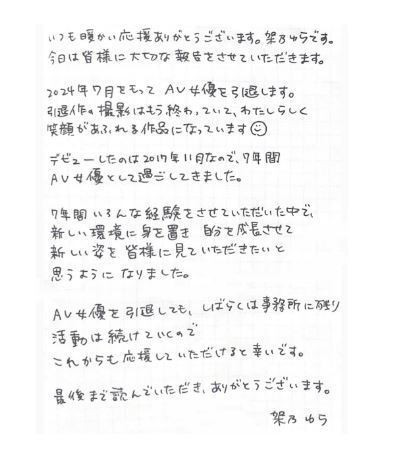 いつも暖かい応援ありがとうございます。架乃ゆらです。
今日は皆様に大切な報告をさせていただきます。
2024年7月をもって AV女優を引退します。
引退作の撮影はもう終わっていて、わたしらしく
笑顔があふれる作品になっています☺
デビューしたのは2017年11月なので、7年間
AV女優として過ごしてきました。
7年間いろんな経験をさせていただいた中で、
新しい環境に身を置き 自分を成長させて
新しい姿を皆様に見ていただきたいと
思うようになりました。
AV女優を引退しても、しばらくは事務所に残り
活動は続けていくので
これからも応援していただけると幸いです。
最後まで読んでいただき、ありがとうございます。
架乃ゆら